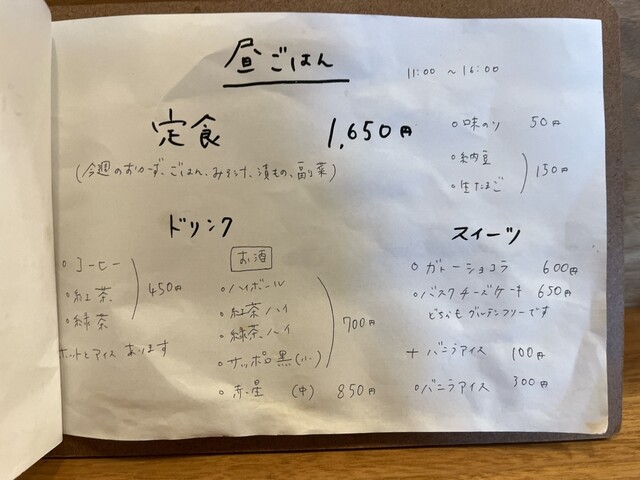 昼ごはん
11:00 ～16:00
定食 1,650円
(今週のおかず、ごはん、みそ汁、漬もの、副菜)
○味のり 50円
○納豆
○生たまご
150円
ドリンク
○コーヒー
○紅茶
○緑茶
450円
ホットとアイス あります
お酒
○ハイボール
○紅茶ハイ
○緑茶ハイ
○サッポロ黒(小)
700円
○赤星 (中) 850円
スイーツ
○ガトーショコラ 600円
○バスクチーズケーキ 650円
どちらもグルテンフリーです
+バニラアイス 100円
○バニラアイス 300円